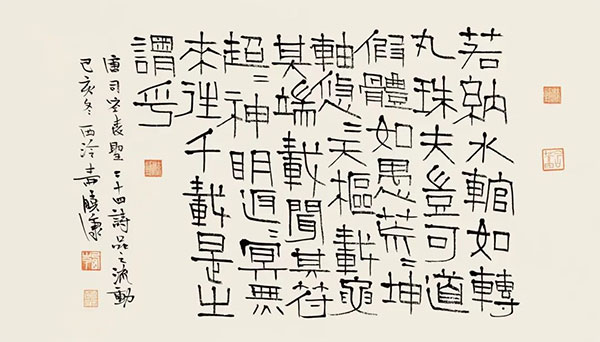 若納水輨如轉
丸珠夫豈可道
假體如愚荒〻坤
軸悠〻天樞載要
其端載聞其符
超〻神明返〻冥無
來往千載是之
謂乎
唐司空表聖二十四詩品之流動
己亥冬西泠壽